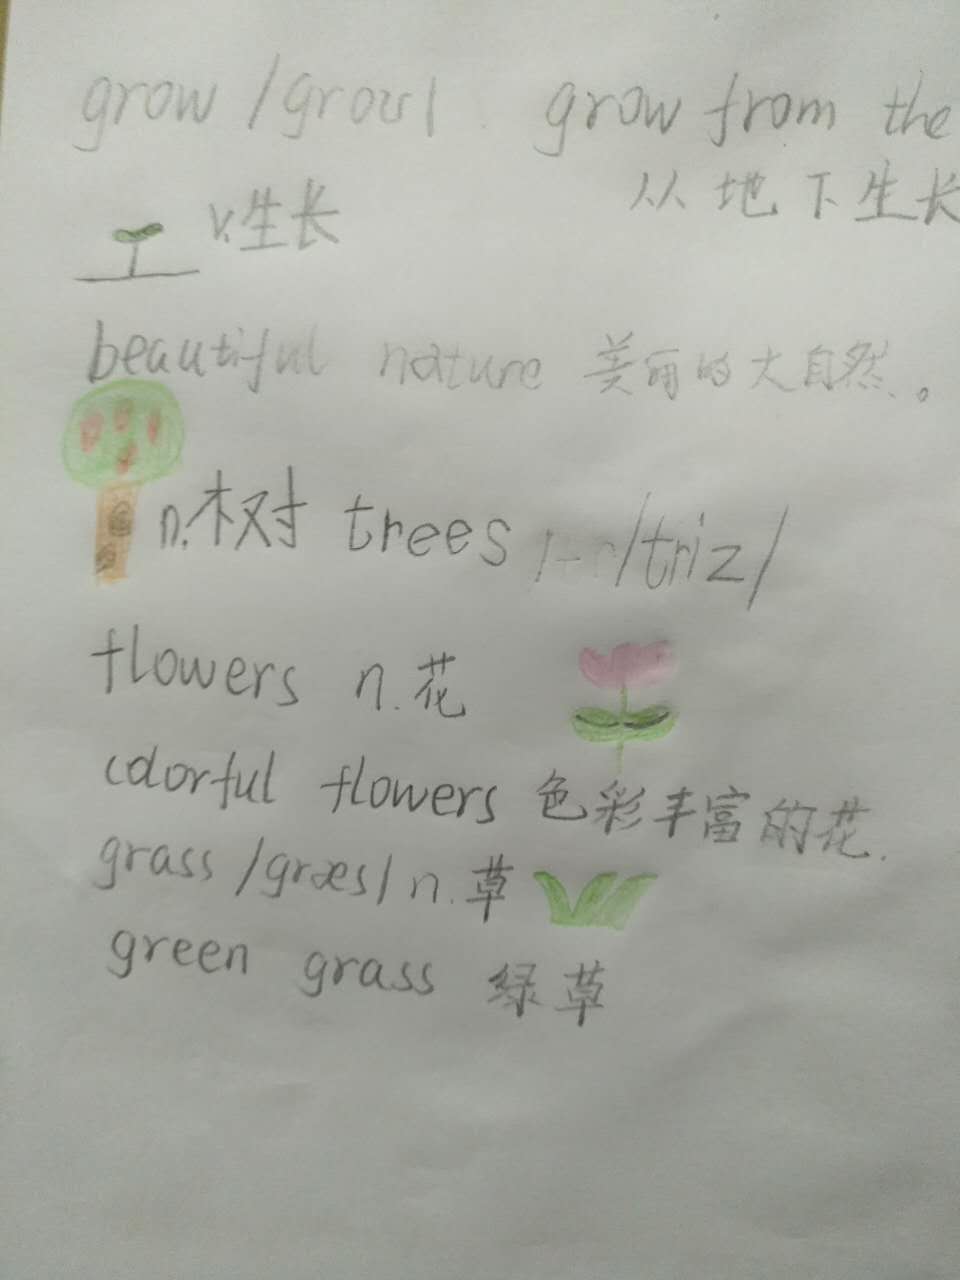 grow /groʊ/ grow from the
v.生长 从地下生长
beautiful nature 美丽的大自然。
n.树 trees /triz/
flowers n.花
colorful flowers 色彩丰富的花.
grass /græs/ n.草
green grass 绿草